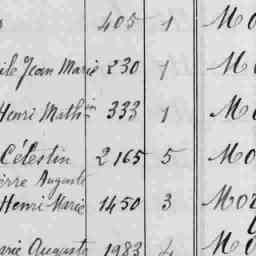 405 1 Mo
ile Jean Marie 230 1 Mo
Henri Mathin 333 1 Mo
Célestin 2165 5 Mo
erre Auguste
Henri Marie 1450 3 Mor
arie Auguste 1983 4 Mo